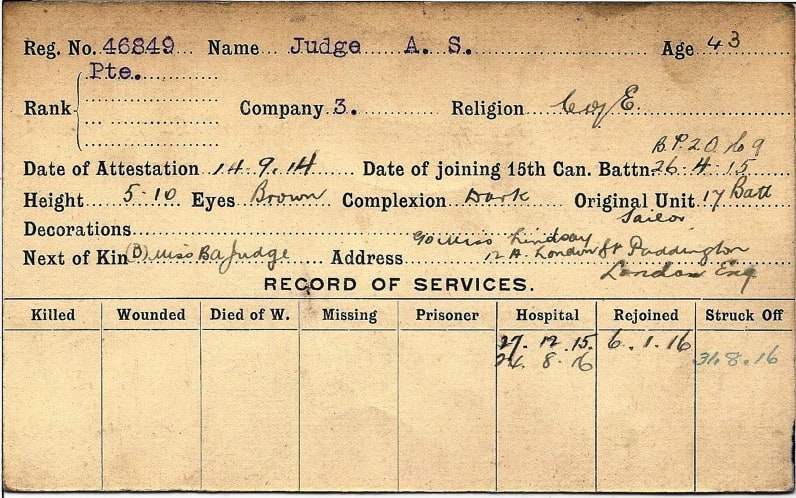 Reg. No. 46849 Name Judge A. S. Age 43
Pte.
Rank Company 3. Religion C of E.
B.P. 20169
Date of Attestation 14.9.14 Date of joining 15th Can. Battn. 26-4-15
Height 5-10 Eyes Brown Complexion Dark Original Unit 17 Batt
Decorations Sailor
c/o Miss Lindsay
Next of Kin (D) Miss B A Judge Address 12 A. London St Paddington
London Eng
RECORD OF SERVICES.
Killed Wounded Died of W. Missing Prisoner Hospital Rejoined Struck Off
27. 12. 15. 6. 1. 16
24. 8. 16 31. 8. 16